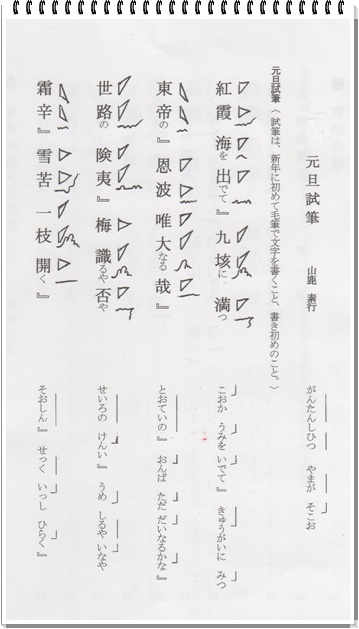 元旦試筆　山鹿　素行
がんたんしひつ　やまが　そこお
元旦試筆〈試筆は、新年に初めて毛筆で文字を書くこと、書き初めのこと。〉
紅霞海を出でて』九垓に満つ
こおか　うみを　いでて』きゅうがいに　みつ
東帝の』恩波唯大なる哉』
とおていの』おんぱ　ただ　だいなるかな』
世路の険夷』梅識るや否や
せいろの　けんい』うめ　しるや　いなや
霜辛』雪苦一枝開く』
そおしん』せっく　いっし　ひらく』